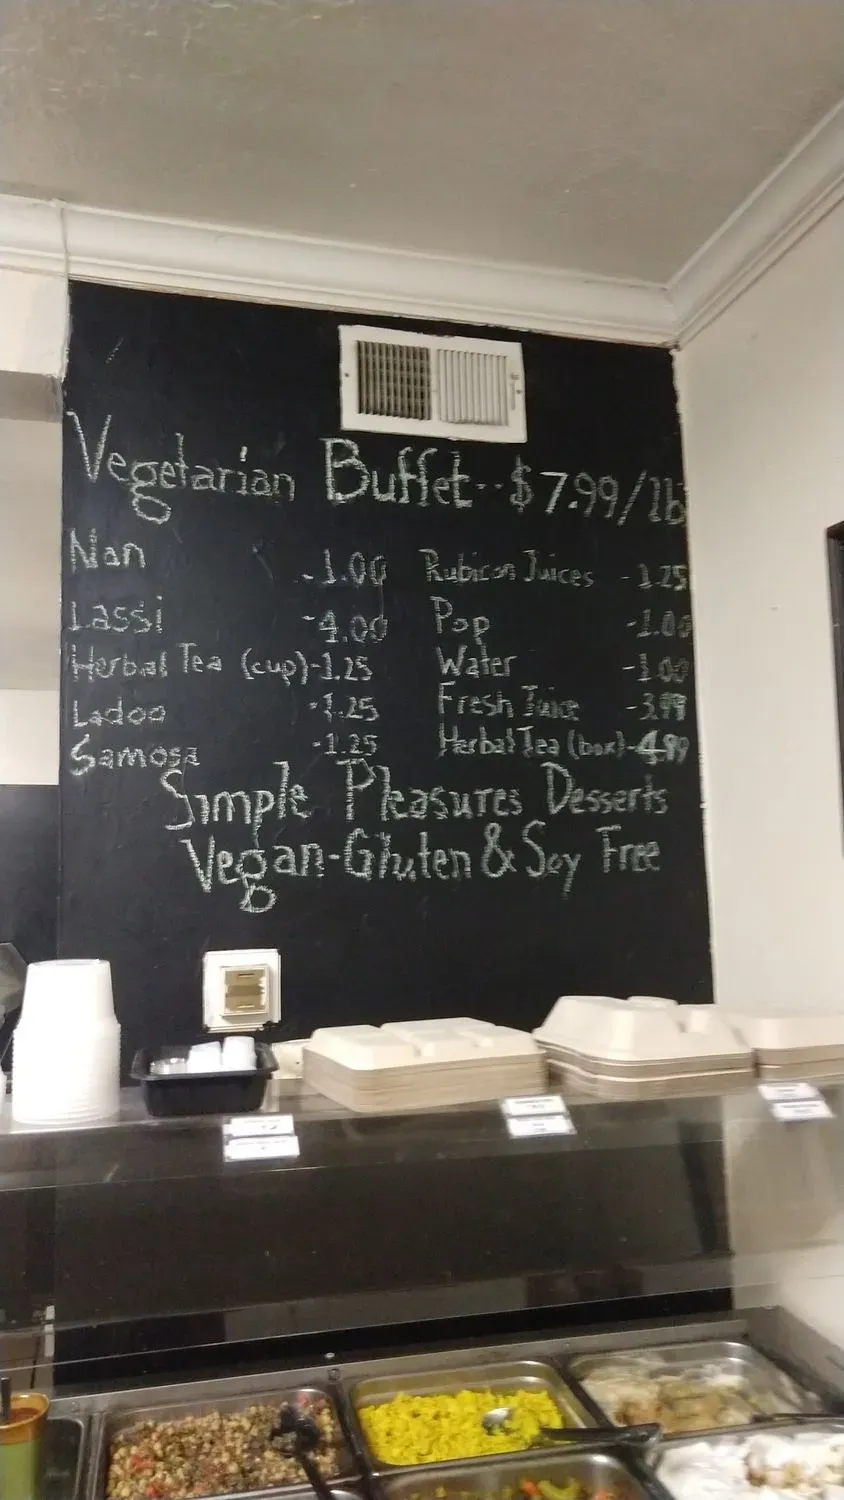 Vegetarian Buffet-- $7.99/lb
Nan -1.00
Lassi -4.00
Herbal Tea (cup)-1.25
Ladoo -1.25
Samosa -1.25
Rubicon Juices -1.25
Pop -1.00
Water -1.00
Fresh Juice -3.99
Herbal Tea (box)-4.99
Simple Pleasures Desserts
Vegan-Gluten & Soy Free